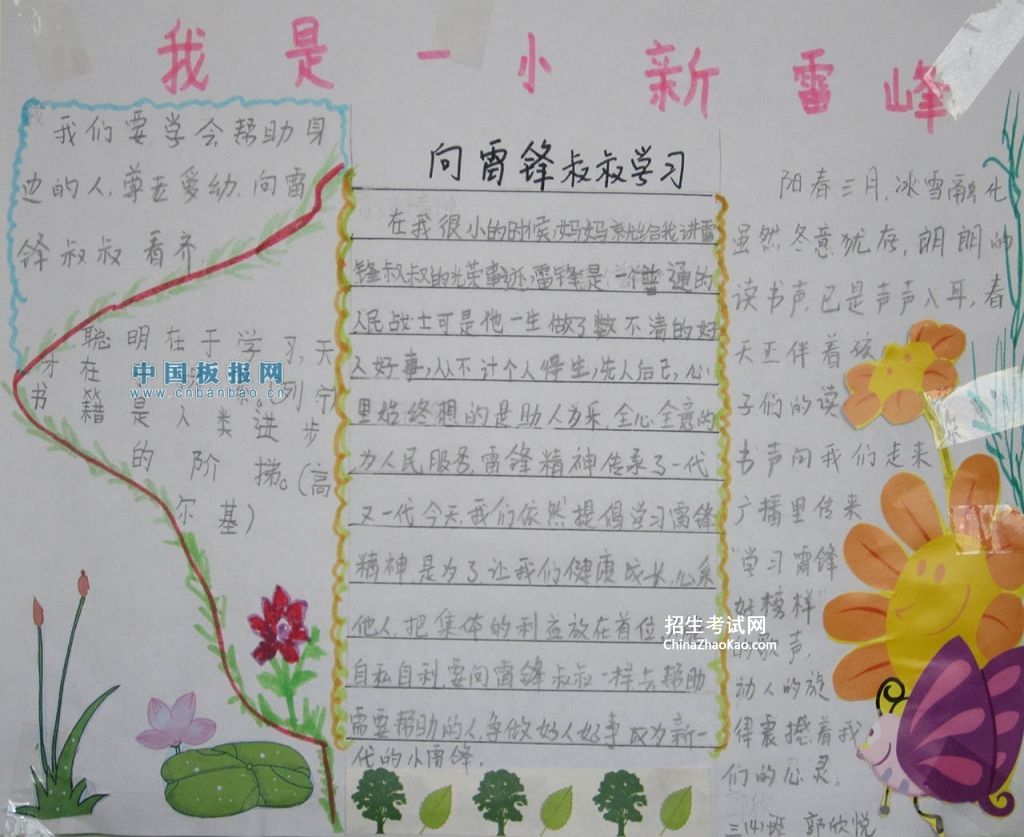 我是一小新雷峰
我们要学会帮助身
边的人,尊老爱幼,向雷
锋叔叔看齐.
聪明在于学习,天
才在
书籍是人类进步
的阶梯。(高
尔基)
中国板报网
www.cnbanbao.cn
向雷锋叔叔学习
在我很小的时候,妈妈就给我讲雷
锋叔叔的光荣事迹,雷锋是一个普通的
人民战士可是他一生做了数不清的好
人好事,从不计个人得失,先人后己,心
里始终想的是助人为乐,全心全意的
为人民服务,雷锋精神传承了一代
又一代今天,我们依然提倡学习雷锋
精神是为了让我们健康成长,心系
他人,把集体的利益放在首位
自私自利,要向雷锋叔叔一样去帮助
需要帮助的人,争做好人好事成为新一
代的小雷锋.
招生考试网
ChinaZhaoKao.com
阳春三月,冰雪融化
虽然冬意犹存,朗朗的
读书声,已是声声入耳,春
天正伴着孩
子们的读
书声向我们走来
广播里传来
"学习雷锋
好榜样"
的歌声,
动人的旋
律震撼着我
们的心灵。
三(4)班 郭欣悦